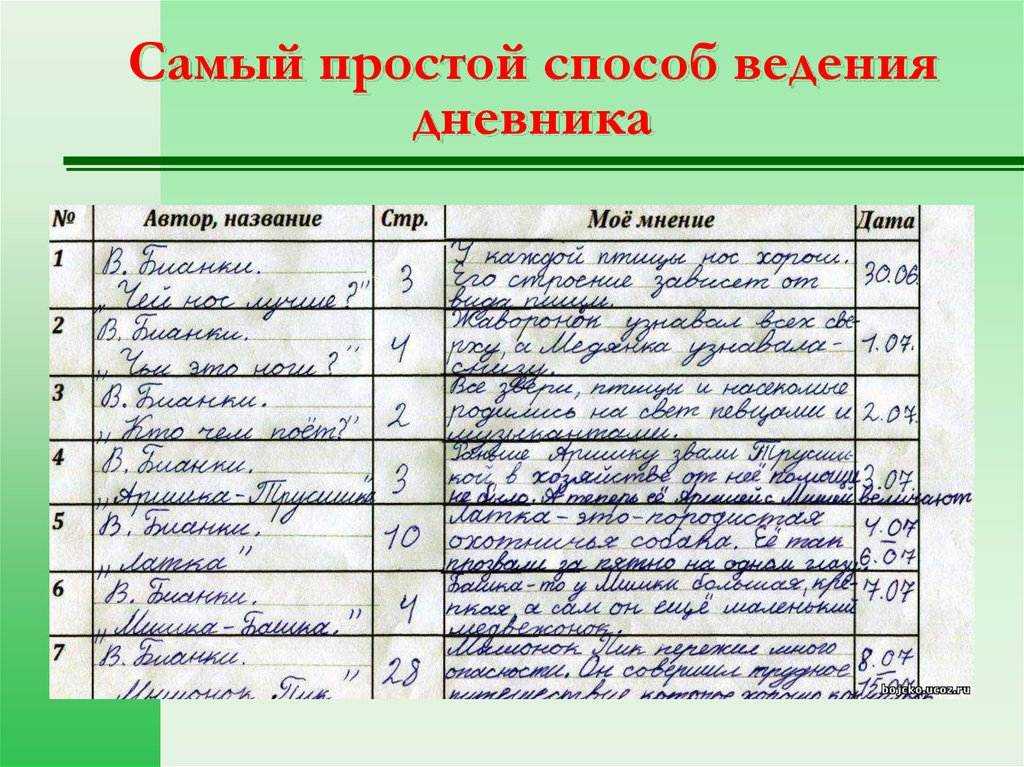 Самый простой способ ведения
дневника
№ Автор, название Стр. Моё мнение Дата
1 В. Бианки. „Чей нос лучше?" 3 У каждой птицы нос хорош. 30.06
Его строение зависит от
вида пищи.
2 В. Бианки. „Чьи это ноги?" 4 Жаворонок узнавал всех све-
рху, а Медянка узнавала- 1.07.
снизу.
3 В. Бианки. „Кто чем поёт?" 2 Все звери, птицы и насекомые
родились на свет певцами и 2.07.
музыкантами.
4 В. Бианки. „Аришка-Трусишка" 3 Раньше Аришку звали Трусиш-
кой в хозяйстве от неё помощи 3.07.
не было. А теперь её Аришей с Мишей величают
5 В. Бианки. „Латка" 10 Латка-это-породистая 4.07-
охотничья собака. Её так 6.07
прозвали за пятно на одном глазу.
6 В. Бианки. „Мишка-Башка." 4 Башка-то у Мишки большая, кре- 7.07
пкая, а сам он ещё маленький
медвежонок.
7 В. Бианки. „Мышонок Пик" 28 Мышонок Пик пережил много 8.07
опасности. Он совершил трудное 15.07
путешествие которое хорошо
bojcko.ucoz.ru